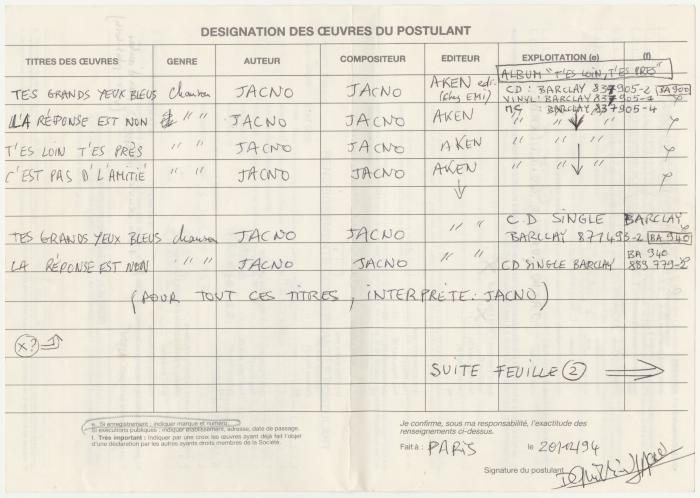 DESIGNATION DES ŒUVRES DU POSTULANT
TITRES DES ŒUVRES GENRE AUTEUR COMPOSITEUR EDITEUR EXPLOITATION (e) (f)
ALBUM "T'ES LOIN, T'ES PRÈS"
TES GRANDS YEUX BLEUS chanson JACNO JACNO AKEN edi. CD : BARCLAY 837905-2 BA 900
(chez EMI) VINYL : BARCLAY 837905-1
LA RÉPONSE EST NON " " JACNO JACNO AKEN : BARCLAY 837905-4
T'ES LOIN T'ES PRÈS " " JACNO JACNO AKEN " " "
C'EST PAS D'L'AMITIÉ " " JACNO JACNO AKEN " " "
C.D SINGLE BARCLAY
TES GRANDS YEUX BLEUS chanson JACNO JACNO " " BARCLAY 871493-2 BA 940
BA 940
LA RÉPONSE EST NON " " JACNO JACNO " " CD SINGLE BARCLAY 889 779-2
(POUR TOUT CES TITRES, INTERPRÈTE : JACNO)
X?
SUITE FEUILLE 2
e. Si enregistrement : indiquer marque et numéro.
Si exécutions publiques : indiquer établissement, adresse, date de passage.
f. Très important : Indiquer par une croix les œuvres ayant déjà fait l'objet
d'une déclaration par les autres ayants droits membres de la Société.
Je confirme, sous ma responsabilité, l'exactitude des
renseignements ci-dessus.
Fait à : PARIS le 20/12/94
Signature du postulant